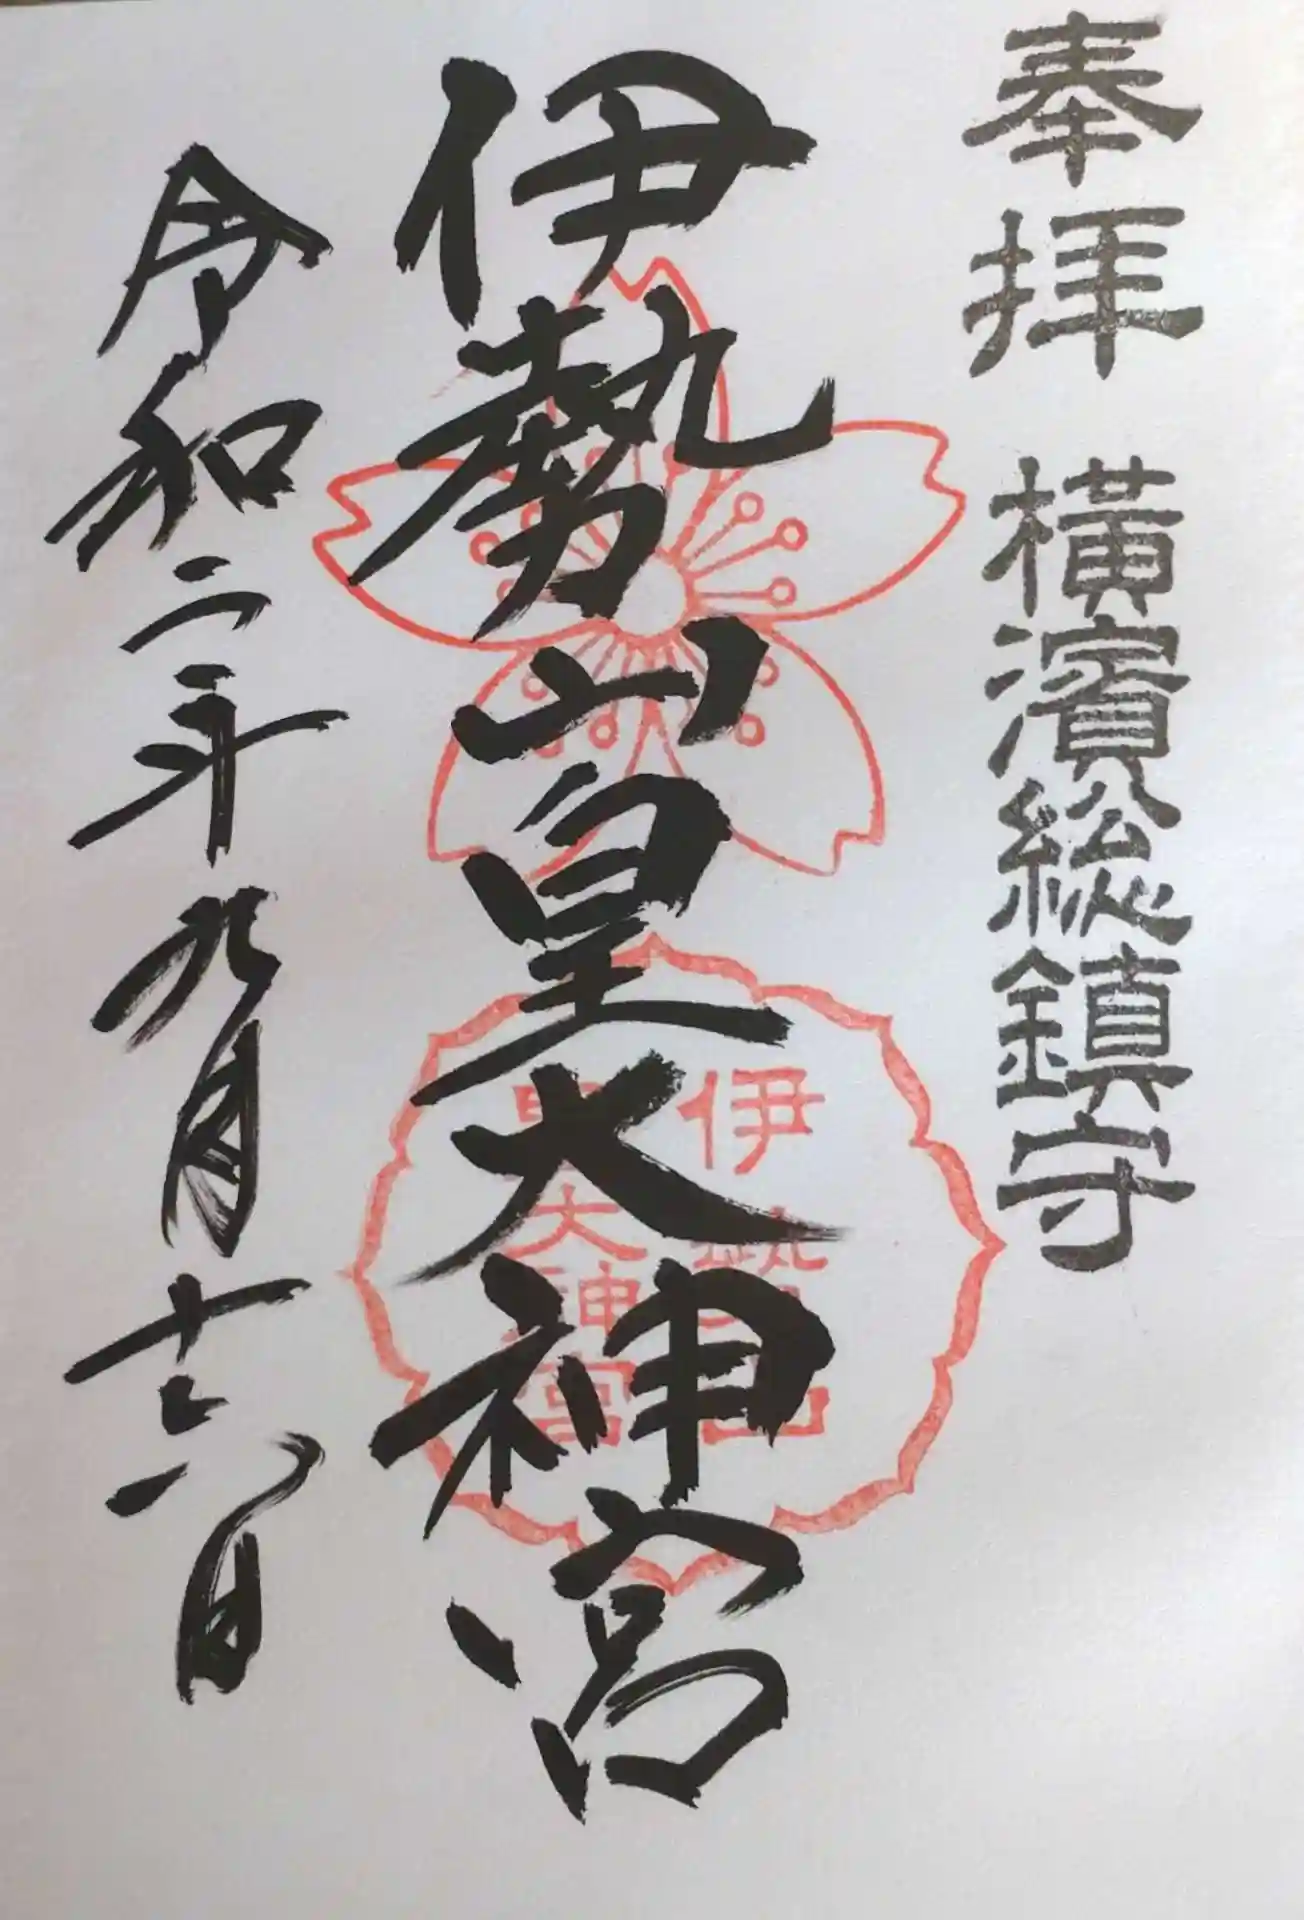 奉拝 横濱総鎮守
伊勢山皇大神宮
令和二年九月十六日
伊勢山
皇大神宮